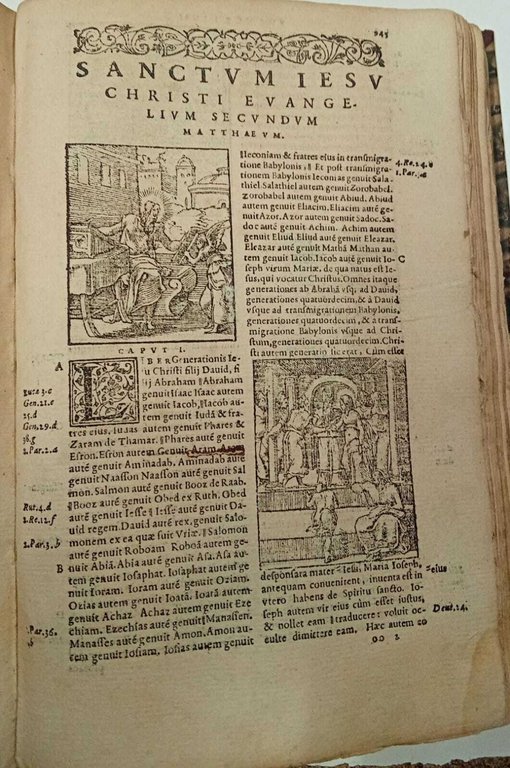 945
SANCTVM IESV
CHRISTI EVANGE-
LIVM SECVNDVM
MATTHAEVM.
CAPVT I.
A
LIBER Generationis Ie-
su Christi filij Dauid, fi
lij Abraham ‖ Abraham
genuit Isaac Isaac autem
genuit Iacob. ‖ Iacob au-
tem genuit Iudã & fra-
tres eius. Iudas autem genuit Phares &
Zaram de Thamar. ‖ Phares autẽ genuit
Esron. Esron autem Genuit Aram. Aram
autẽ genuit Aminadab. Aminadab autẽ
genuit Naasson Naasson autẽ genuit Sal
mon. Salmon autẽ genuit Booz de Raab.
‖ Booz autẽ genuit Obed ex Ruth. Obed
autẽ genuit Iesse ‖ Iesse autẽ genuit Da
uidem regem. Dauid autẽ rex, genuit Salo
monem ex ea quæ fuit Vriæ. ‖ Salomon
autẽ genuit Roboam Roboã autem ge-
B
nuit Abiã. Abia autẽ genuit Asa. Asa au-
tem genuit Iosaphat. Iosaphat autem ge
nuit Ioram. Ioram autẽ genuit Oziam.
Ozias autem genuit Ioatã. Ioatã autem
genuit Achaz Achaz autem genuit Eze
chiam. Ezechias autẽ genuit ‖ Manassen.
Manasses autẽ genuit Amon. Amon au-
tem genuit Iosiam, Iosias autem genuit
Gen.21.a
25.d
Gen.29.d
38.g
1.Par.2.a
Rut.4.d
2.Re.12.f
1.Par.3.b
2.Par.36.
Ieconiam & fratres eius in transmigra
tione Babylonis, ‖ Et post transmigra-
tionem Babylonis Ieconias genuit Sala
thiel. Salathiel autem genuit Zorobabel.
Zorobabel autem genuit Abiud. Abiud
autem genuit Eliacim. Eliacim autẽ ge-
nuit Azor. Azor autem genuit Sadoc. Sa-
doc autem genuit Achim. Achim autem
genuit Eliud Eliud autẽ genuit Eleazar.
Eleazar autẽ genuit Mathã Mathan au-
tem genuit Iacob. Iacob autẽ genuit Io-
C
seph virum Mariæ, de qua natus est Ie-
sus, qui vocatur Christus. Omnes itaque
generationes ab Abrahã vsq; ad Dauid,
generationes quatuordecim, & à Dauid
vsque ad transmigrationem Babylonis,
generationes quatuordecim, & à trans-
migratione Babylonis vsque ad Chri-
stum, generationes quatuordecim. Chri-
sti autem generatio sic erat, Cùm esset
desponsata mater Iesu, Maria Ioseph,
antequam conuenirent, inuenta est in
vtero habens de Spiritu sancto. Io-
seph autem vir eius cùm esset iustus,
& nollet eam traducere: voluit oc-
cultè dimittere eam. Hæc autem co
eius
Deut.24.
OO 2